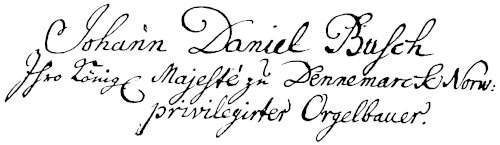 Johann Daniel Busch
Ihro König Majesté zu Dennemarck Norw:
privilegirter Orgelbauer.